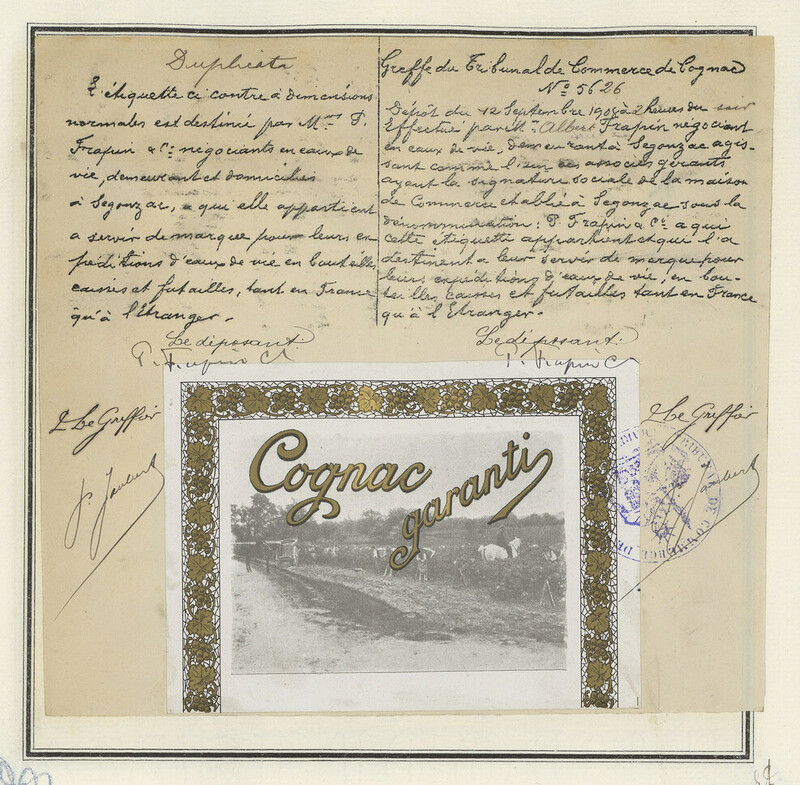 Duplicata
L'étiquette ci contre à dimensions
normales est destinée par M.rs P.
Frapin & Cie négociants en eaux de
vie, demeurant et domiciliés
à Segonzac, à qui elle appartient
a servir de marque, pour leurs ex
péditions d'eaux de vie en bouteilles
caisses et futailles, tant en France
qu'à l'étranger.
Le déposant:
P. Frapin C
Greffe du Tribunal de Commerce de Cognac
No 5626
Dépôt du 12 Septembre 1908 à 2 heures du soir
Effectué par M. Albert Frapin négociant
en eaux de vie, demeurant à Segonzac agis-
sant comme l'un des associés gérants
ayant la signature sociale de la maison
de Commerce établie à Segonzac sous la
dénommination: P. Frapin & Cie a qui
cette étiquette appartient et qui l'a
destinent a leur servir de marque pour
leurs expéditions d'eaux de vie, en bou-
teilles caisses et futailles tant en France
qu'à l'Etranger.
Le déposant:
P. Frapin C
Le Greffier
Le Greffier
Cognac
garanti
TRIBUNAL DE COMMERCE DE